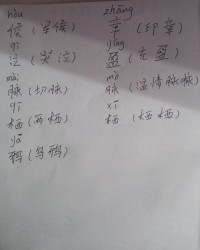 hòu zhāng
侯(等侯) 章(印章)
qì yíng
泣(哭泣) 盈(充盈)
mài mò
脉(切脉) 脉(温情脉脉)
qī xī
栖(两栖) 栖(栖栖)
yā
鸦(乌鸦)